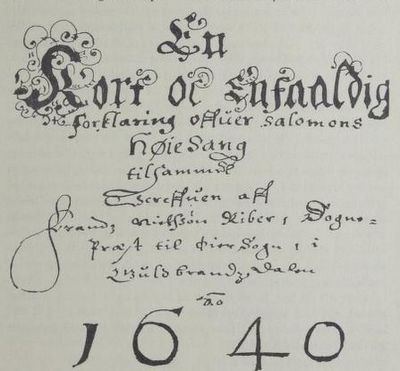 En
Kort oc Enfaaldig
forklaring offuer Salomons
Høie Sang
tilsammen
Screffuen aff
Frandz Nickszøn Riber, Sogne=
Præst til Øier Sogn, i
Guldbrandz Dalen
Ao
1640